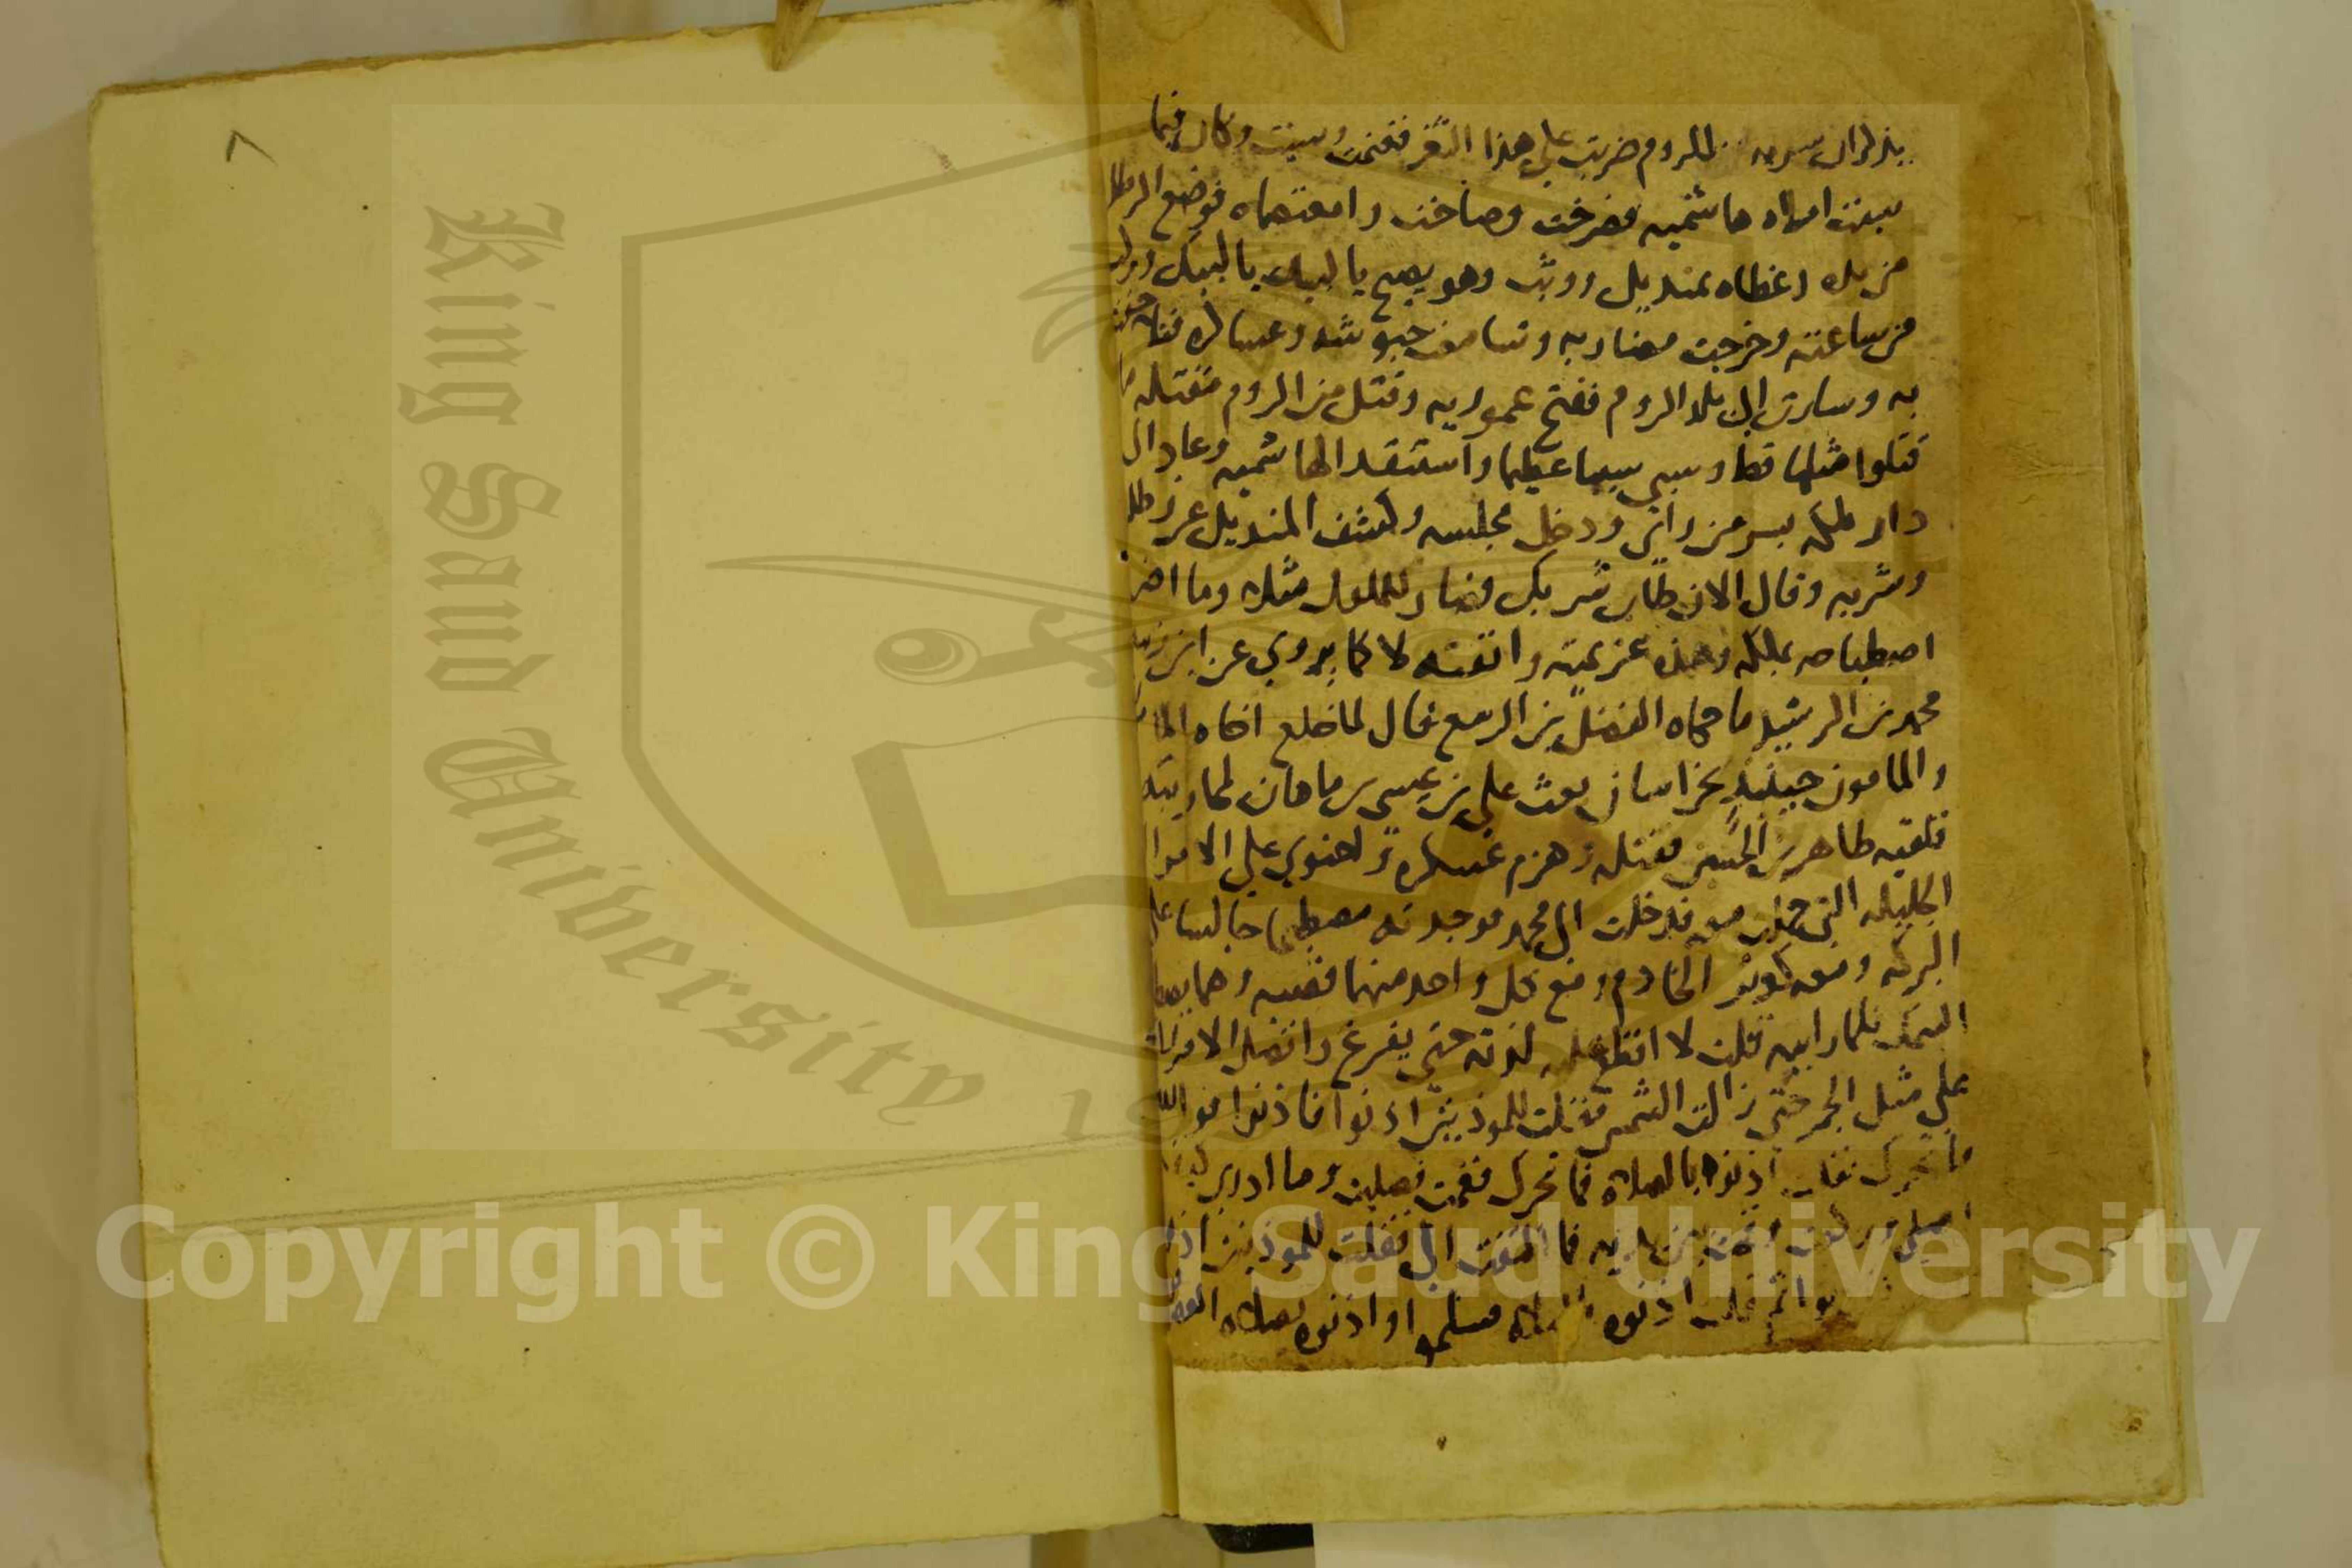 ٨
للروم ضربت على هذا الثغر فغنمت وسبت وكان فيما
سبت امراه هاشميه فصرخت وصاحت وامعتصماه فوضع الرطل
من يده وغطاه بمنديل ووثب وهو يصيح يا لبيك يا لبيك وركب
من ساعته وخرجت مضاربه وتسامعت جيوشه وعساكره
به وسار الى بلاد الروم ففتح عموريه وقتل من الروم مقتله ما
قتلوا مثلها قط وسبى سبيا عظيما واستنقد الهاشميه وعاد الى
دار ملكه بسر من راى ودخل مجلسه وكشف المنديل عن رطله
وشربه وقال الان طاب شربك فصار للملوك مثله وما اضر
اصطباحه بملكه وهذه عزيمته وانفته لا كما يروي عن ابن زبيده
محمد بن الرشيد ما حكاه الفضل بن الربيع قال لما خلع اخاه المامون
والمامون حينئذ بخراسان بعث على بن عيسى بن ماهان لمحاربته
فلقيه طاهر بن الحسين فقتله وهزم عسكره واحتوي علي الاموال
الجليله التي حملت معه فدخلت الى محمد فوجدته مصطبحا جالسا على
البركه ومعه كوثر الخادم ومع كل واحد منهما قصبه وهما يصطادان
السمك فلما رايته قلت لا اقطع عليه لذته حتى يفرغ واتصل الامر
على مثل الجمر حتى زالت الشمس فقلت للموذنين اذنوا فاذنوا فوالله
ما تحرك فقلت اذنوه بالصلاه فما تحرك فقمت فصليت وما ادري كيف
اصلى وقمت بين يديه فما التفت الى فقلت للموذنين اذنوا
اذنوه فسلموا واذنوه بصلاه العصر
King Saud University
1957
Copyright © King Saud University